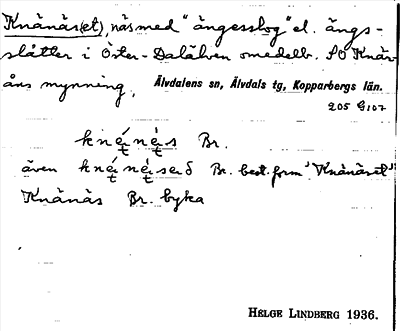 Knänäs(et), näs med "ängesslog" el. ängs-
slåtter i Öster-Dalälven omedelb. SO Knär-
åns mynning.
Älvdalens sn, Älvdals tg, Kopparbergs län.
205 G107
Br.
även Br. best. form "Knänäset"
Knänäs Br. byka
HELGE LINDBERG 1936.